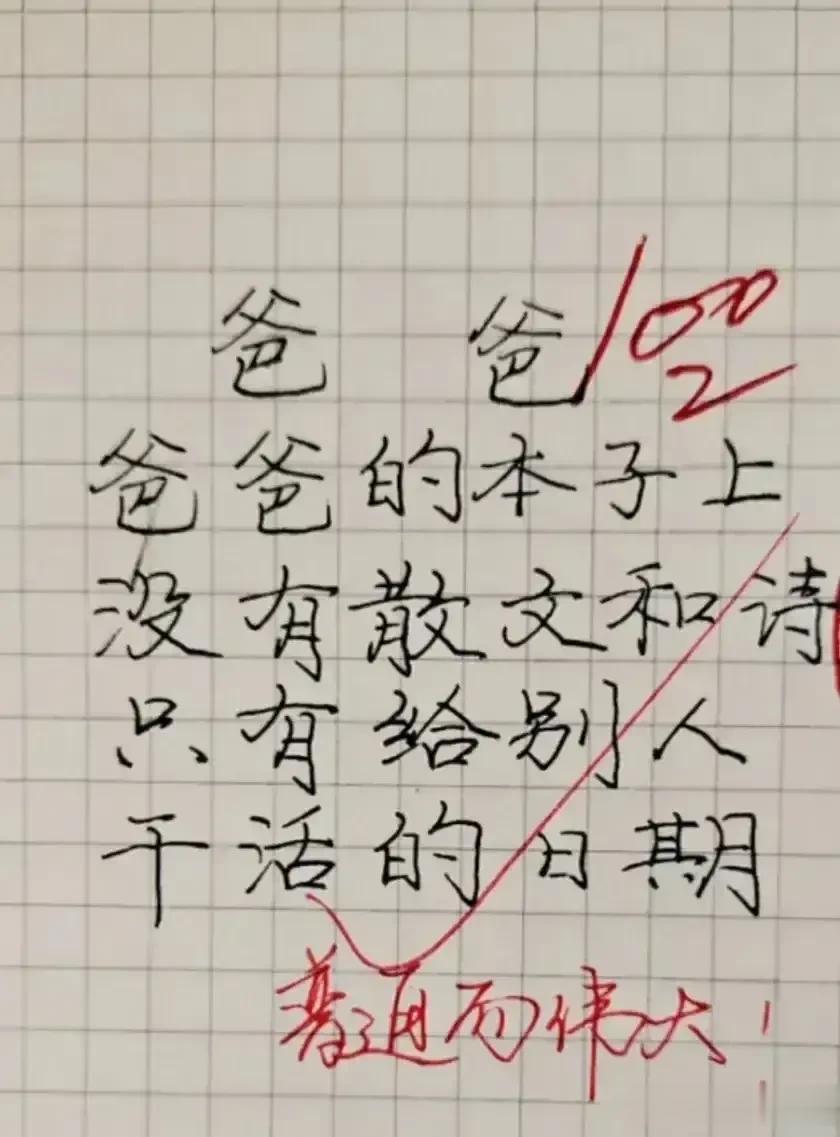 爸爸 100
爸爸的本子上
没有散文和诗
只有给别人
干活的日期
普通而伟大！